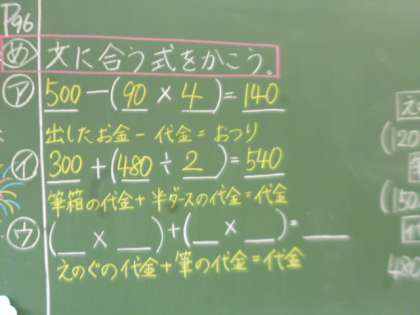 P96
め 文に合う式をかこう。
ア 500－(90×4)＝140
出したお金－代金＝おつり
イ 300＋(480÷2)＝540
筆箱の代金＋半ダースの代金＝代金
ウ (__×__)＋(__×__)＝__
えのぐの代金＋筆の代金＝代金
え
(120
(150
480